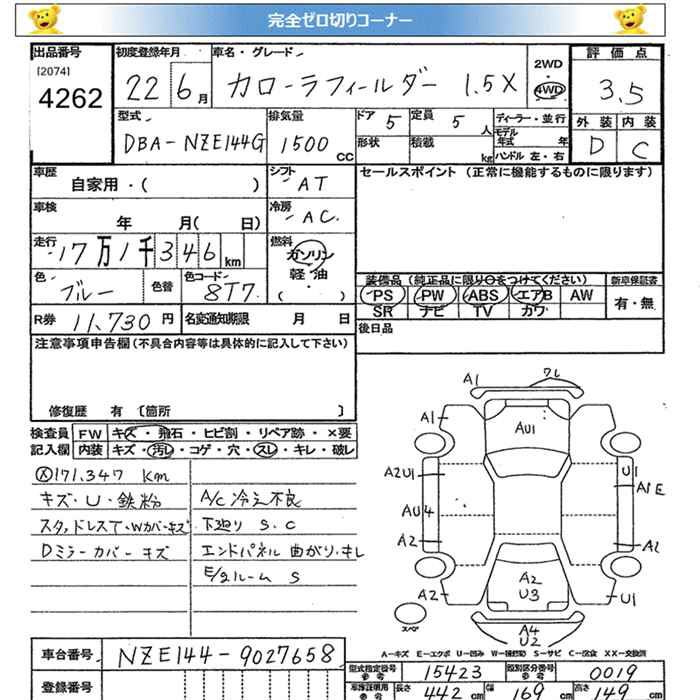 完全ゼロ切りコーナー
出品番号 初度登録年月 車名・グレード 2WD 評価点
[2074]
4262 22 6月 カローラフィールダー 1.5X 4WD 3.5
型式 排気量 ドア 5 定員 5人 ディーラー・並行 外装 内装
DBA-NZE144G 1500CC 形状 積載 kg モデル年式 年 D C
ハンドル 左・右
車歴 シフト セールスポイント (正常に機能するものに限ります)
自家用・( ) AT
車検 冷房
年 月( 日) AC
走行 燃料
17万1千346km ガソリン
軽・油
( )
色 ブルー 色替 色コード 8T7 装備品 (純正品に限り○をつけてください) 新車保証書
PS PW ABS エアB AW 有・無
SR ナビ TV カワ
R券 11,730円 名変通知期限 月 日 後日品
注意事項申告欄(不具合内容等は具体的に記入して下さい)
修復歴 有 〔箇所 〕
検査員 FW キズ・飛石・ヒビ割・リペア跡・×要
記入欄 内装 キズ・汚レ・コゲ・穴・スレ・キレ・破レ
メ171.347 km
キズ・U・鉄粉 A/C冷え不良
スタッドレスT・Wカバーキズ 下廻り S.C
Dミラーカバーキズ エンドパネル曲がり・キレ
E/gルーム S
A1 ワレ
A1
AU1
A2U1 U1
A1E
AU4
A2 A2
A2
U3
A2 U1
スペア
A4
U2
A-キズ E-エクボ U-凹み W-補修跡 S-サビ C-腐食 XX-交換済
車台番号 NZE144-9027658
型式指定番号 参考 15423 類別区分番号 参考 0019
登録番号
長さ 442cm 幅 169cm 高さ 149cm